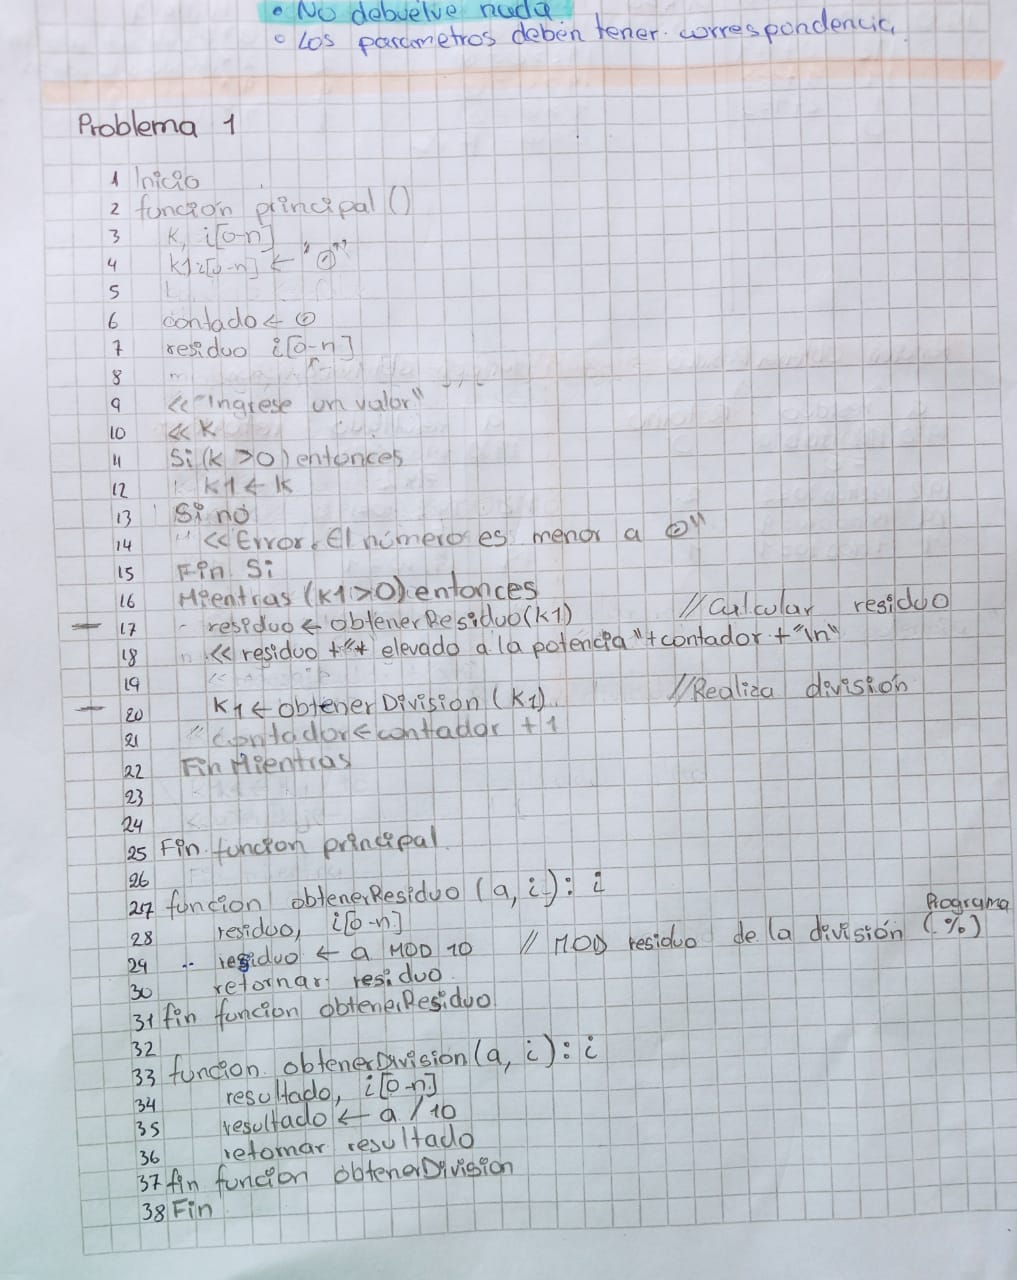 • No debuelve nada
• Los parametros deben tener correspondencia
Problema 1
1 Inicio
2 función principal ()
3 K, i[0-n]
4 k1 i[0-n] ← "0"
5
6 contado ← 0
7 residuo i[0-n]
8
9 << "Ingrese un valor"
10 << K
11 Si (k >0) entonces
12 k1 ← k
13 Si no
14 << Error. El número es menor a 0"
15 Fin Si
16 Mientras (k1>0) entonces
17 residuo ← obtenerResiduo(k1) //Calcular residuo
18 << residuo +"+ elevado a la potencia "+contador + "\n"
19
20 K1 ← obtenerDivisión (k1) //Realiza división
21 contador ← contador + 1
22 Fin Mientras
23
24
25 Fin función principal
26
27 función obtenerResiduo (a, i): i
28 residuo, i[0-n] Programa
29 residuo ← a MOD 10 // MOD residuo de la división (%)
30 retornar residuo
31 fin función obtenerResiduo
32
33 función obtenerDivisión (a, i): i
34 resultado, i[0-n]
35 resultado ← a / 10
36 retornar resultado
37 fin función obtenerDivisión
38 Fin